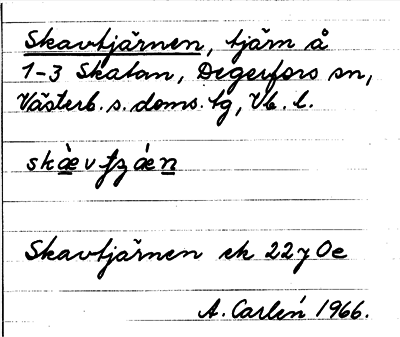 Skavtjärnen, tjärn å
1-3 Skatan, Degerfors sn,
Västerb. s. doms. tg, Vb. l.
Skavtjärnen ek 22 7 0e
A. Carlén 1966.